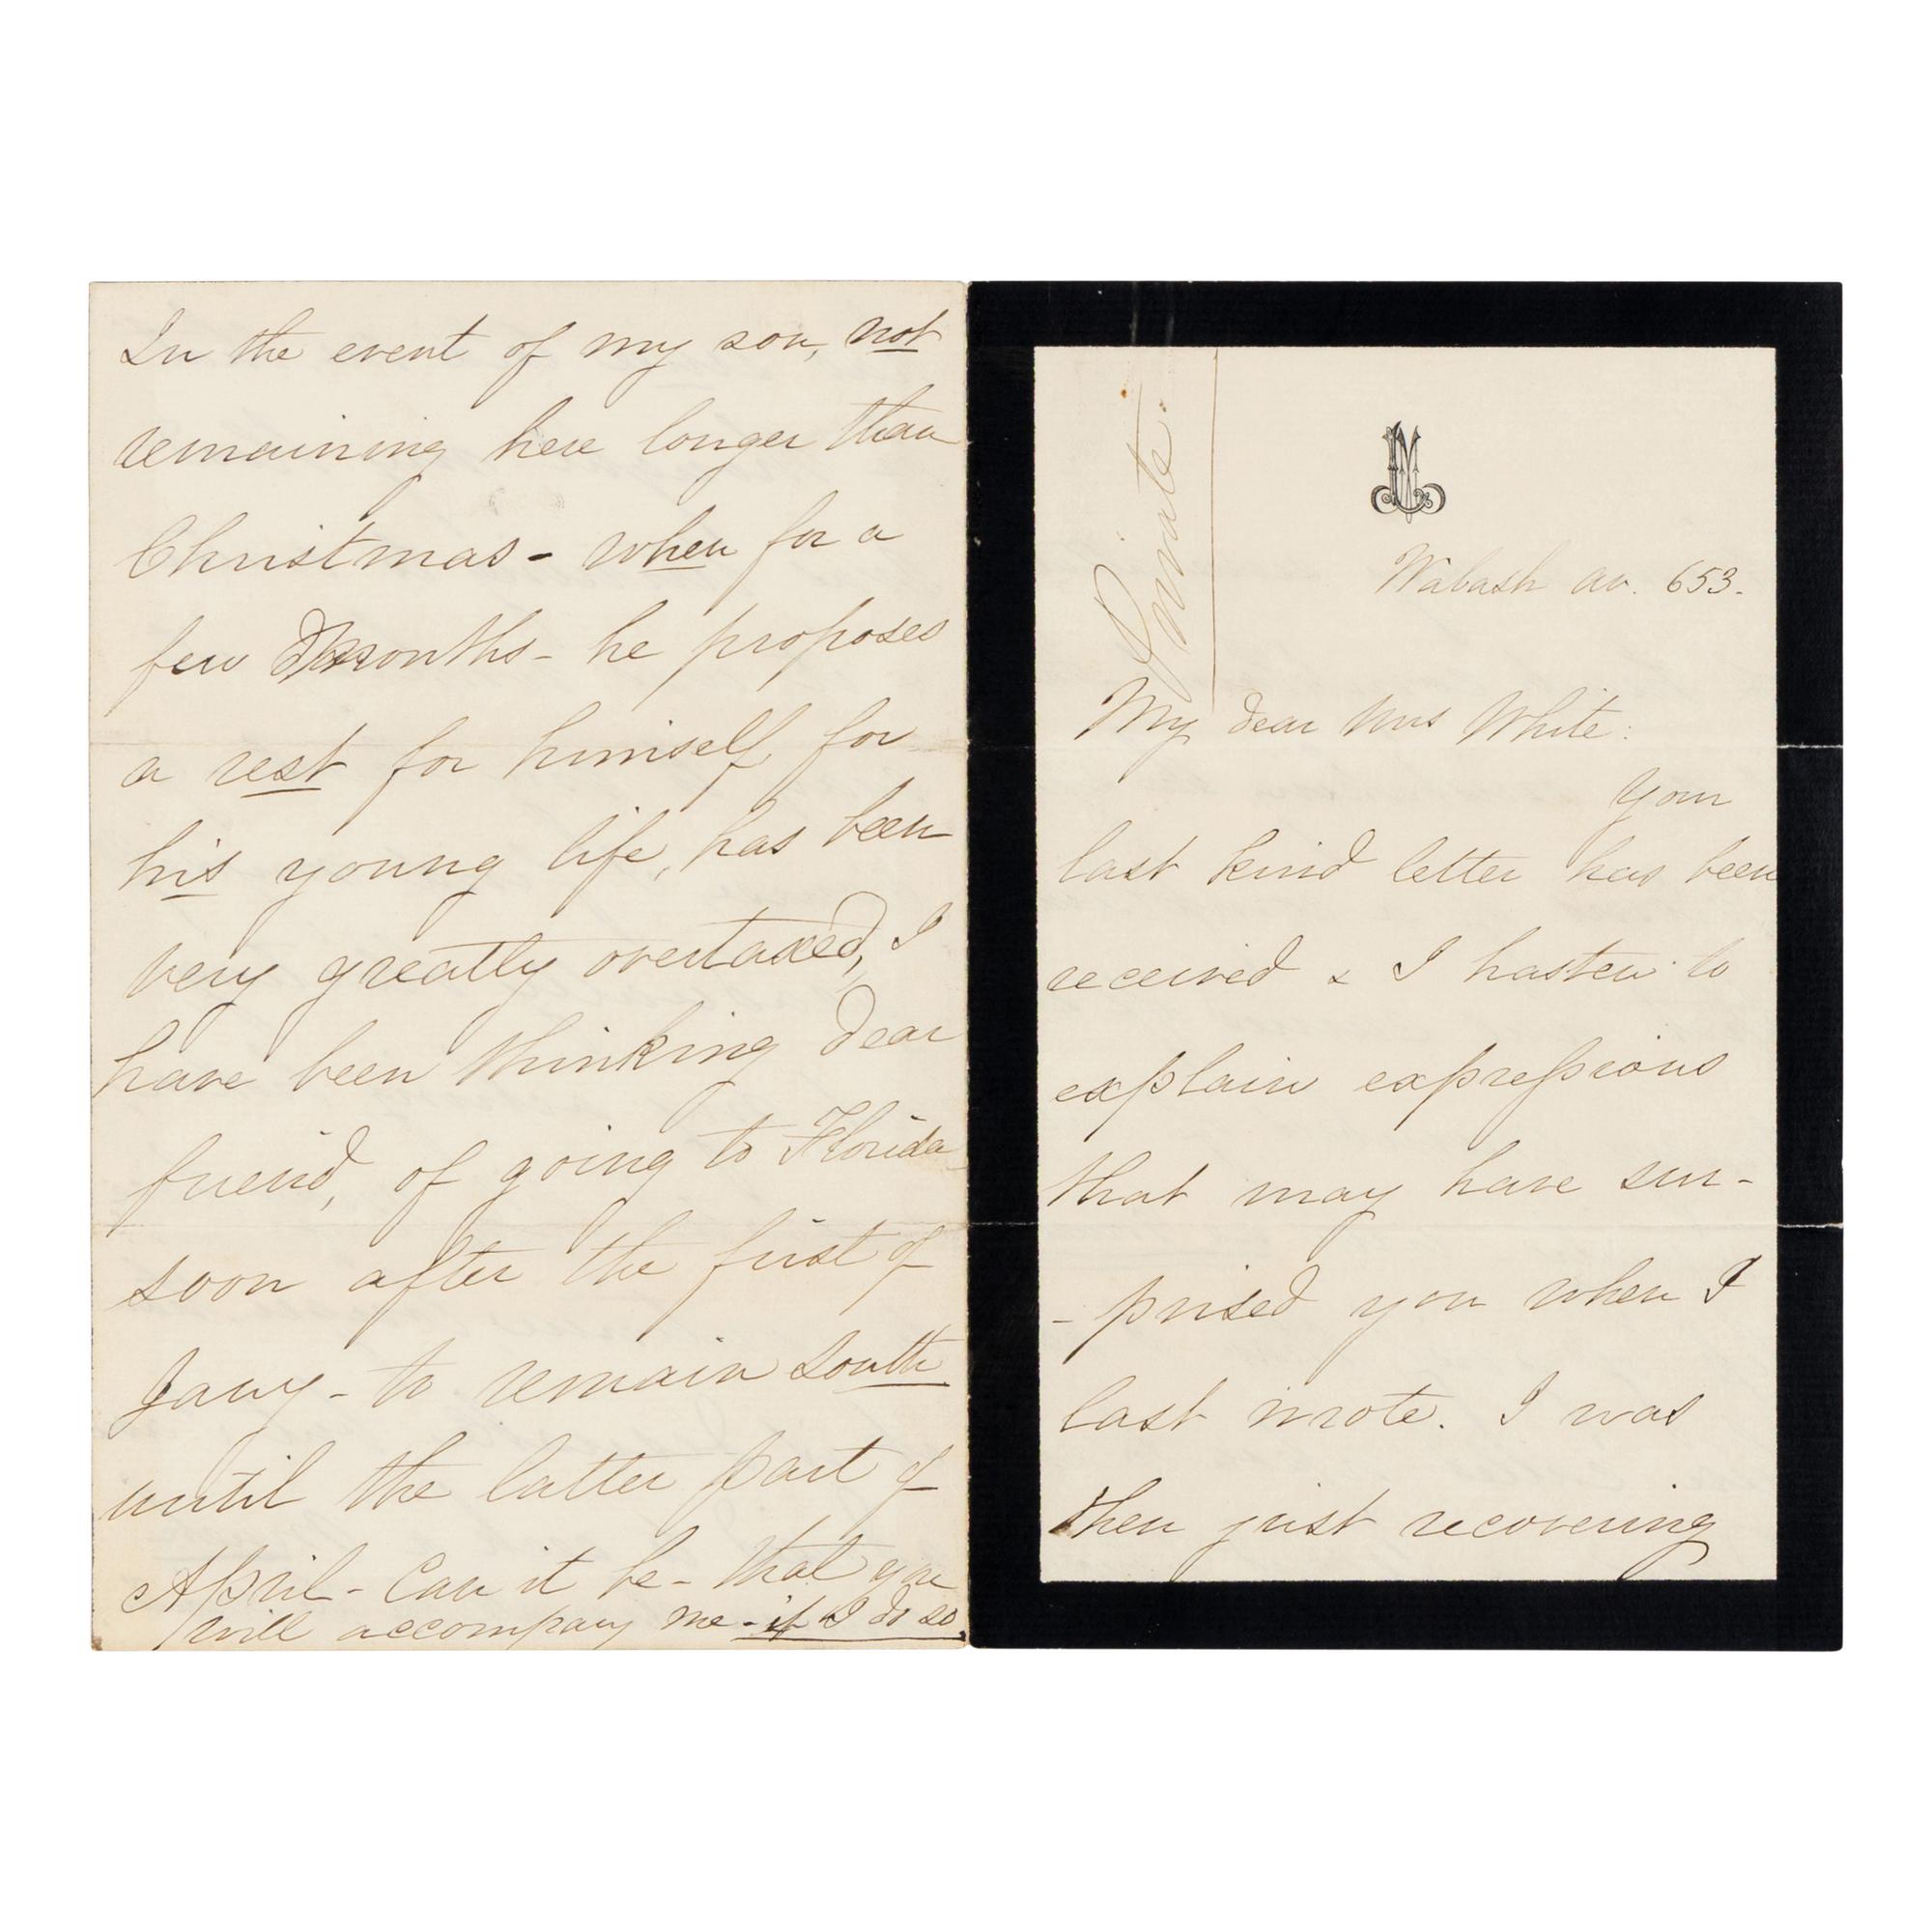 In the event of my son, not
remaining here longer than
Christmas - when for a
few months - he proposes
a rest for himself, for
his young life, has been
very greatly overtaxed, I
have been thinking dear
friend, of going to Florida
soon after the first of
Jany - to remain South
until the latter part of
April - Can it be - that you
will accompany me - if I do so.
Private.
Wabash av. 653.
My dear Mrs White:
Your
last kind letter has been
received & I hasten to
explain expressions
that may have sur-
- prised you when I
last wrote. I was
then just recovering